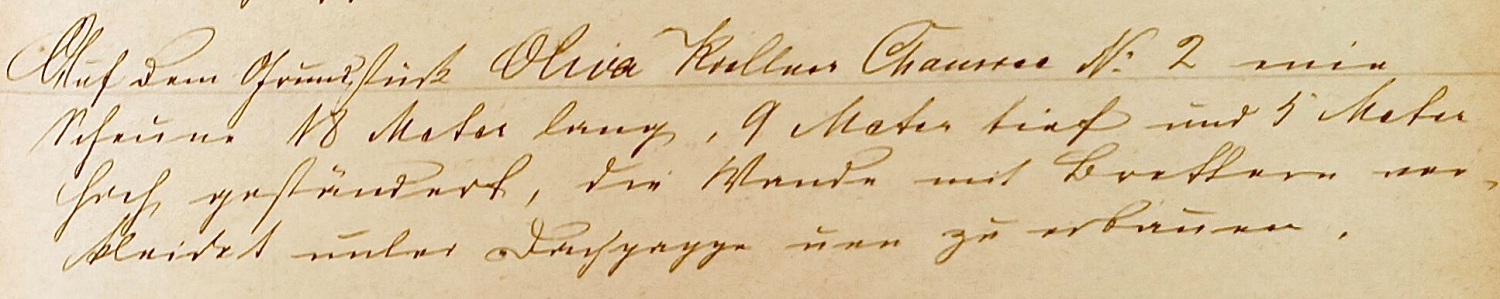 Auf dem Grundstück Oliva Koellner Chaussee No 2 eine
Scheune 18 Meter lang, 9 Meter tief und 5 Meter
hoch geständert, die Wände mit Brettern ver-
kleidet unter Dachpappe neu zu erbauen.